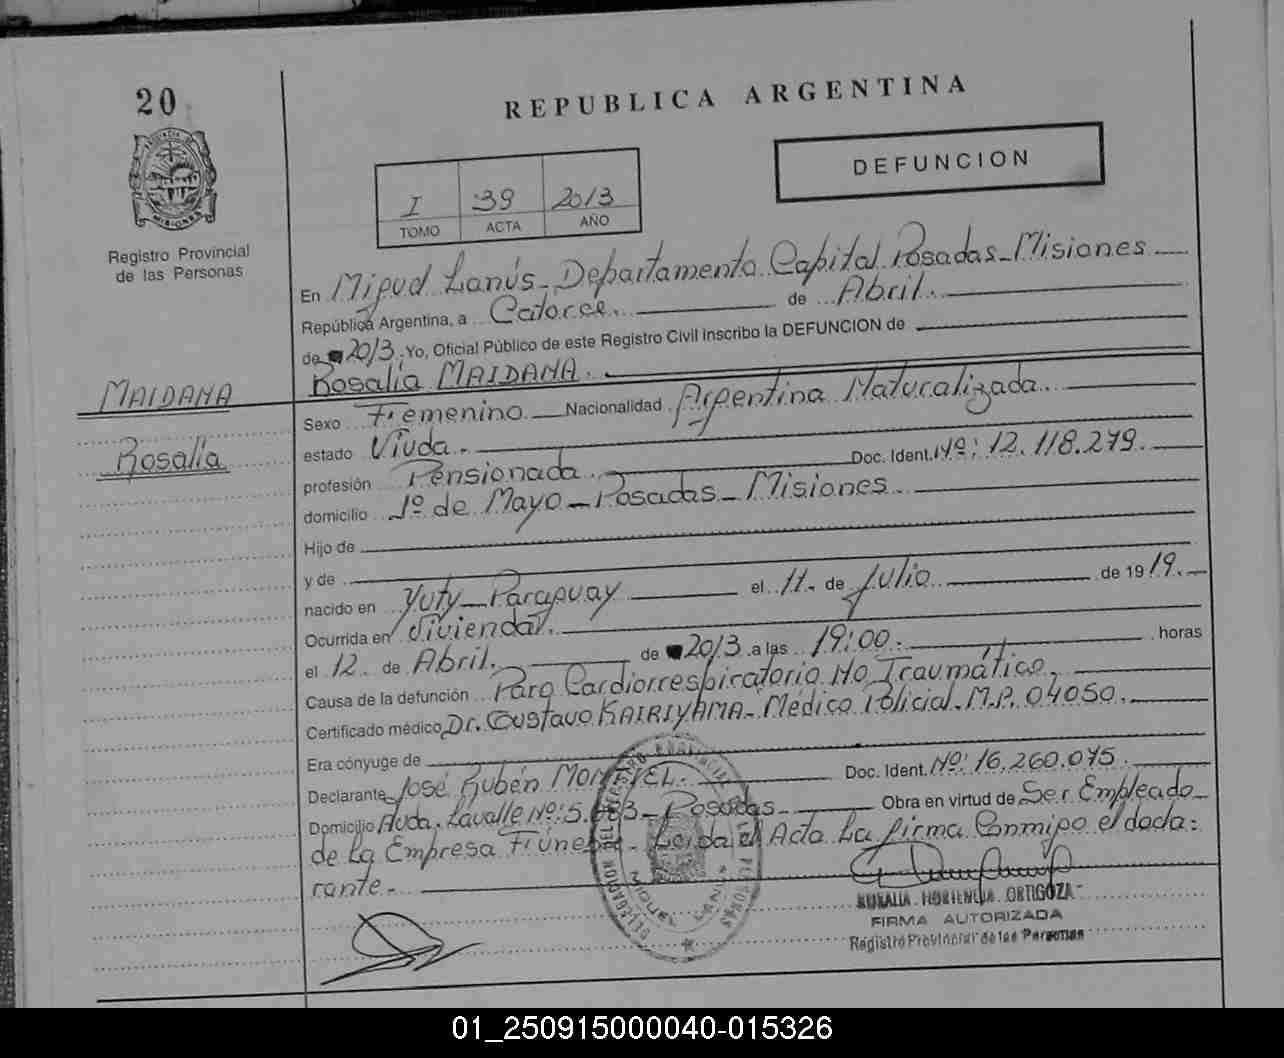 20
REPUBLICA ARGENTINA
DEFUNCION
I 39 2013
TOMO ACTA AÑO
Registro Provincial
de las Personas
En Miguel Lanús - Departamento Capital Posadas - Misiones
República Argentina, a Catorce. de Abril.
de 2013. Yo, Oficial Público de este Registro Civil inscribo la DEFUNCION de
Rosalía MAIDANA.
MAIDANA
Rosalía
Sexo Femenino Nacionalidad Argentina Naturalizada.
estado Viuda.
profesión Pensionada Doc. Ident. Nº: 12.118.279.
domicilio 1º de Mayo - Posadas - Misiones
Hijo de
y de
nacido en Yuty - Paraguay el 11. de Julio de 1919.
Ocurrida en Vivienda.
el 12. de Abril. de 2013 a las 19:00. horas
Causa de la defunción Paro Cardiorrespiratorio No Traumático.
Certificado médico Dr. Gustavo KAIRIYAMA - Médico Policial - M.P. 04050.
Era cónyuge de
Declarante José Rubén Doc. Ident. Nº: 16.260.075.
Domicilio Avda. Lavalle Nº: Posadas Obra en virtud de Ser Empleado
de La Empresa Fúnebre - Leída el Acta La firma Conmigo el decla:
rante.
HORTENCIA ORTIGOZA
FIRMA AUTORIZADA
Registro Provincial de las Personas
01_250915000040-015326